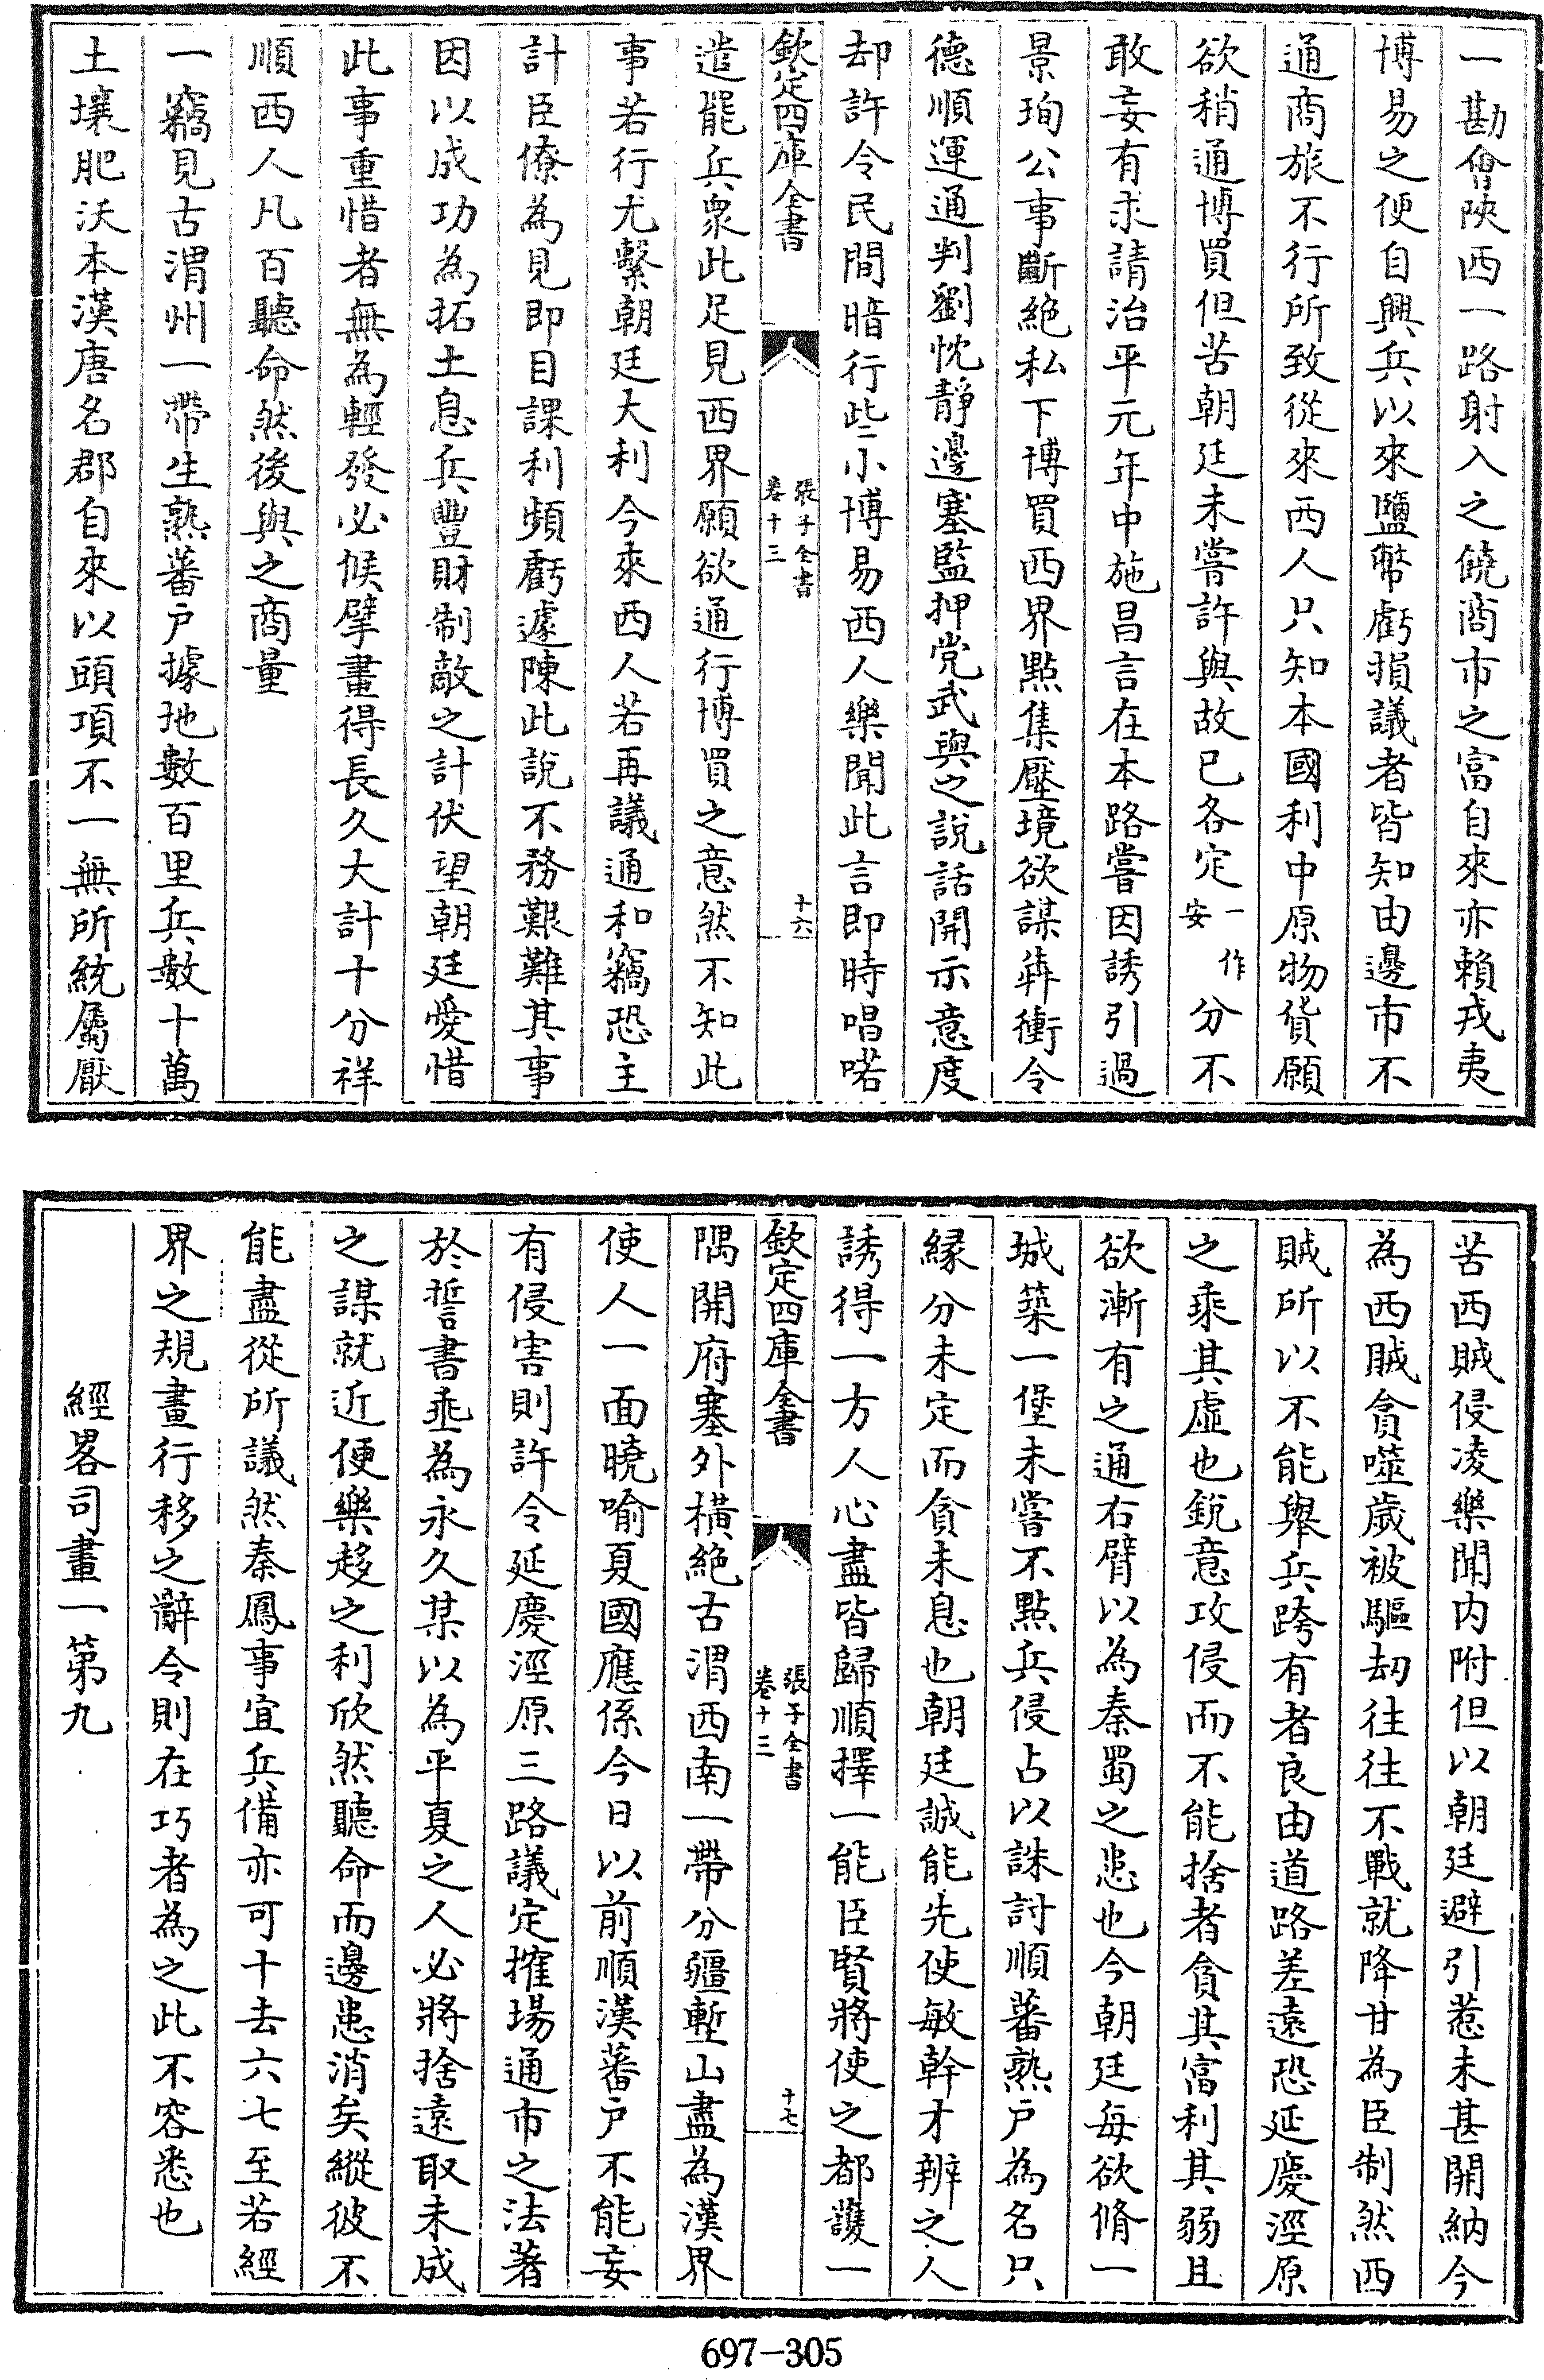 一勘會陝西一路射入之饒商市之富自來亦賴戎夷
博易之便自興兵以來鹽幣虧損議者皆知由邊市不
通商旅不行所致從來西人只知本國利中原物貨願
欲稍通博買但苦朝廷未嘗許與故已各定一作安分不
敢妄有求請治平元年中施昌言在本路嘗因誘引過
景珣公事斷絶私下博買西界點集壓境欲謀犇衝令
德順運通判劉忱靜邊塞監押党武與之說話開示意度
却許令民間暗行些小博易西人樂聞此言即時唱喏
欽定四庫全書
張子全書
卷十三
十六
遣罷兵衆此足見西界願欲通行博買之意然不知此
事若行尤繫朝廷大利今來西人若再議通和竊恐主
計臣僚為見即目課利頻虧遽陳此說不務艱難其事
因以成功為拓土息兵豐財制敵之計伏望朝廷愛惜
此事重惜者無為輕發必候擘畫得長久大計十分祥
順西人凡百聽命然後與之商量
一竊見古渭州一帶生熟蕃戶據地數百里兵數十萬
土壤肥沃本漢唐名郡自來以頭項不一無所統屬厭
苦西賊侵凌樂聞内附但以朝廷避引惹未甚開納今
為西賊貪噬歲被驅刼往往不戰就降甘為臣制然西
賊所以不能舉兵跨有者良由道路差遠恐延慶涇原
之乘其虛也銳意攻侵而不能捨者貪其富利其弱且
欲漸有之通右臂以為秦蜀之患也今朝廷每欲脩一
城築一堡未嘗不點兵侵占以誅討順蕃熟戶為名只
緣分未定而貪未息也朝廷誠能先使敏幹才辨之人
誘得一方人心盡皆歸順擇一能臣賢將使之都護一
欽定四庫全書
張子全書
卷十三
十七
隅開府塞外橫絶古渭西南一帶分疆塹山盡為漢界
使人一面曉喻夏國應係今日以前順漢蕃戶不能妄
有侵害則許令延慶涇原三路議定搉場通市之法著
於誓書垂為永久某以為平夏之人必將捨遠取未成
之謀就近便樂趍之利欣然聽命而邊患消矣縱彼不
能盡從所議然秦鳳事宜兵備亦可十去六七至若經
界之規畫行移之辭令則在巧者為之此不容悉也
經畧司畫一第九
697-305